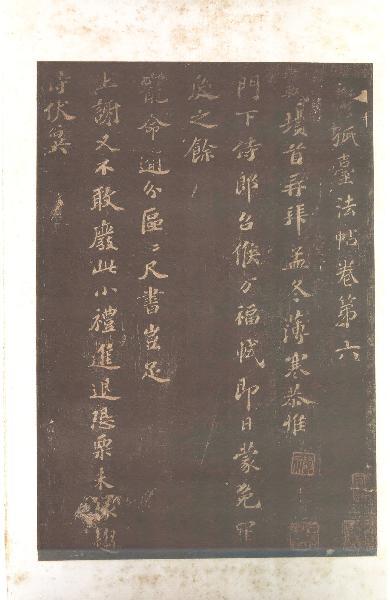 鬱孤臺法帖卷第六
首再拜孟冬薄寒恭惟
門下侍郎台候万福軾即日蒙免罪
戾之餘
寵命逾分區〻尺書豈足
上謝又不敢廢此小禮進退恐栗未緣趨
侍伏冀